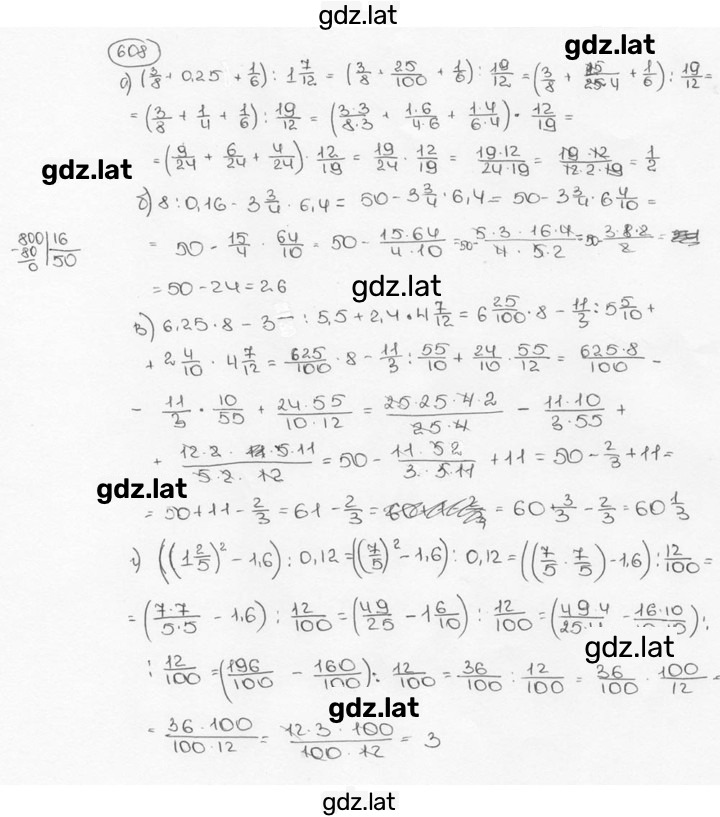 gdz.lat
608
gdz.lat
а) (3/8 + 0,25 + 1/6) : 1 7/12 = (3/8 + 25/100 + 1/6) : 19/12 = (3/8 + 25/25·4 + 1/6) : 19/12 =
= (3/8 + 1/4 + 1/6) : 19/12 = (3·3/8·3 + 1·6/4·6 + 1·4/6·4) · 12/19 =
gdz.lat
= (9/24 + 6/24 + 4/24) · 12/19 = 19/24 · 12/19 = 19·12/24·19 = 19·12/12·2·19 = 1/2
б) 8 : 0,16 - 3 3/4 · 6,4 = 50 - 3 3/4 · 6,4 = 50 - 3 3/4 · 6 4/10 =
800 | 16
- 80 | 50
0
= 50 - 15/4 · 64/10 = 50 - 15·64/4·10 = 50 - 5·3·16·4/4·5·2 = 50 - 3·8·2/2 =
= 50 - 24 = 26
gdz.lat
в) 6,25 · 8 - 3 : 5,5 + 2,4 · 4 7/12 = 6 25/100 · 8 - 11/3 : 5 5/10 +
+ 2 4/10 · 4 7/12 = 625/100 · 8 - 11/3 : 55/10 + 24/10 · 55/12 = 625·8/100 -
- 11/3 · 10/55 + 24·55/10·12 = 25·25·4·2/25·4 - 11·10/3·55 +
+ 12·2·5·11/5·2·12 = 50 - 11·52/3·5·11 + 11 = 50 - 2/3 + 11 =
gdz.lat
= 50 + 11 - 2/3 = 61 - 2/3 = = 60 + 3/3 - 2/3 = 60 1/3
г) ((1 2/5)² - 1,6) : 0,12 = ((7/5)² - 1,6) : 0,12 = ((7/5 · 7/5) - 1,6) : 12/100 =
= (7·7/5·5 - 1,6) : 12/100 = (49/25 - 1 6/10) : 12/100 = (49·4/25 - 16·10) :
gdz.lat
: 12/100 = (196/100 - 160/100) : 12/100 = 36/100 : 12/100 = 36/100 · 100/12 =
gdz.lat
= 36·100/100·12 = 12·3·100/100·12 = 3
gdz.lat